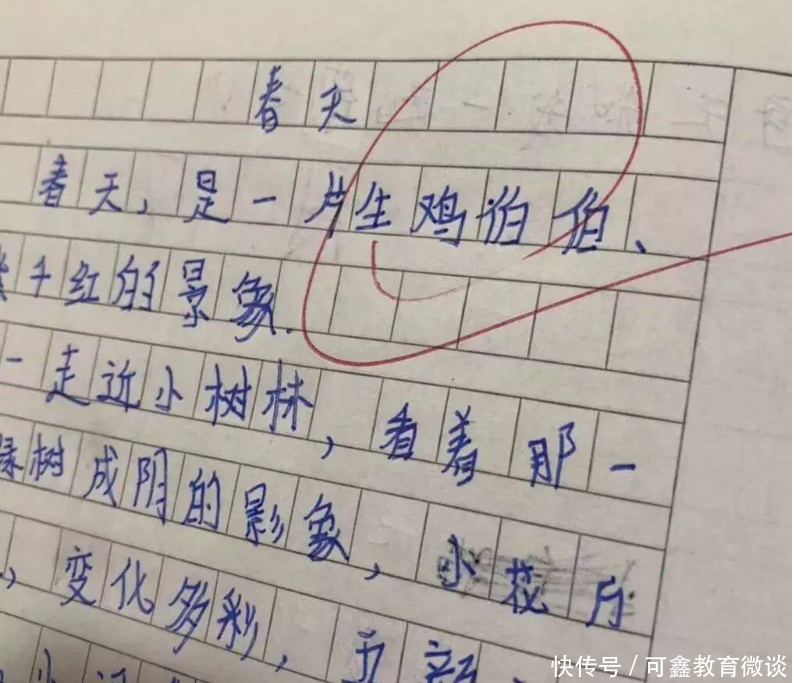 春天
春天，是一片生鸡伯伯、
千红的景象.
一走近小树林，看着那一
树成阴的影象，小花
，变化多彩，五颜
快传号 / 可鑫教育微谈